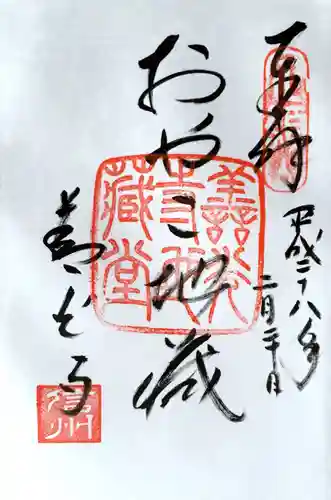 奉拝
平成二十八年
二月二十日
おやこ地蔵
善光寺地藏堂
善光寺
信州